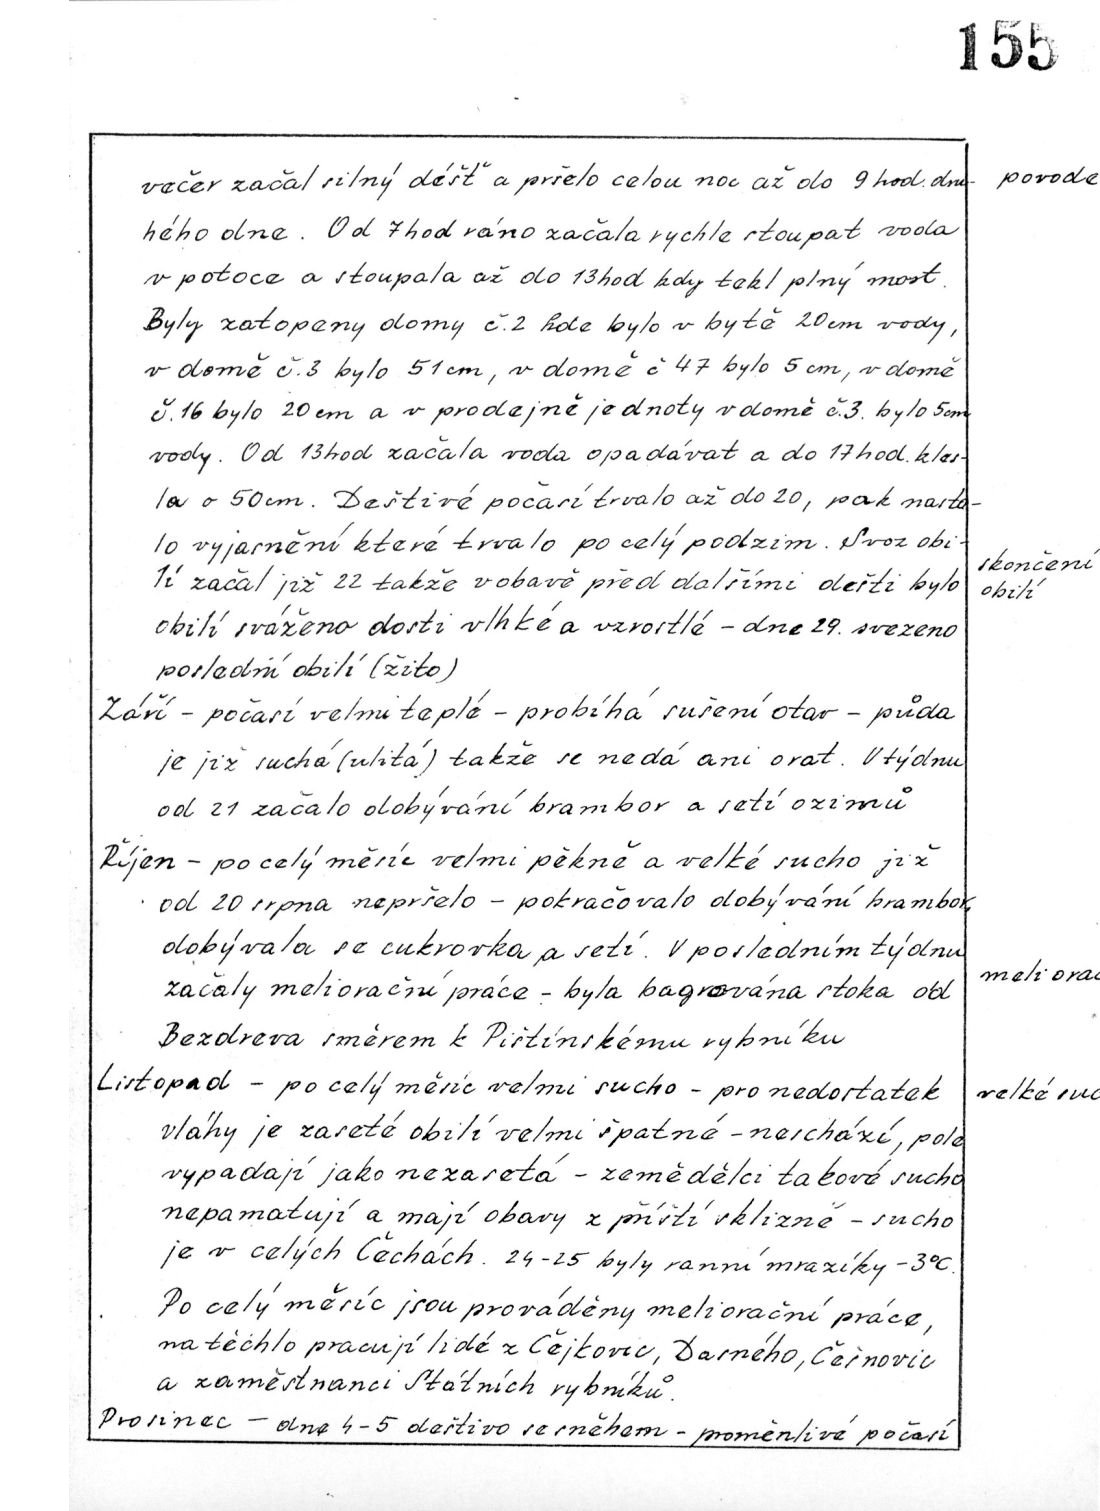 155
večer začal silný déšť a pršelo celou noc až do 9 hod. dru- povode
hého dne. Od 7hod ráno začala rychle stoupat voda
v potoce a stoupala až do 13hod kdy tekl plný most.
Byly zatopeny domy č.2 kde bylo v bytě 20cm vody,
v domě č.3 bylo 51cm, v domě č 47 bylo 5 cm, v domě
č.16 bylo 20 cm a v prodejně jednoty v domě č.3. bylo 5cm
vody. Od 13hod začala voda opadávat a do 17hod. kles-
la o 50cm. Deštivé počasí trvalo až do 20, pak nasta-
lo vyjasnění které trvalo po celý podzim. Svoz obi-
skončení
lí začal již 22 takže v obavě před dalšími dešti bylo
obilí
obilí sváženo dosti vlhké a vzrostlé - dne 29. svezeno
poslední obilí (žito)
Září - počasí velmi teplé - probíhá sušení otav - půda
je již suchá (ulitá) takže se nedá ani orat. V týdnu
od 21 začalo dobývání brambor a setí ozimů
Říjen - po celý měsíc velmi pěkně a velké sucho již
od 20 srpna nepršelo - pokračovalo dobývání brambor,
dobývala se cukrovka a setí. V posledním týdnu
meliorac
začaly meliorační práce - byla bagrována stoka od
Bezdreva směrem k Pištínskému rybníku
Listopad - po celý měsíc velmi sucho - pro nedostatek velké suc
vláhy je zaseté obilí velmi špatné - neschází, pole
vypadají jako nezasetá - zemědělci takové sucho
nepamatují a mají obavy z příští sklizně - sucho
je v celých Čechách. 24-25 byly ranní mrazíky -3°C.
Po celý měsíc jsou prováděny meliorační práce,
na těchlo pracují lidé z Čejkovic, Dasného, Češnovic
a zaměstnanci Státních rybníků.
Prosinec - dne 4-5 deštivo se sněhem - proměnlivé počasí